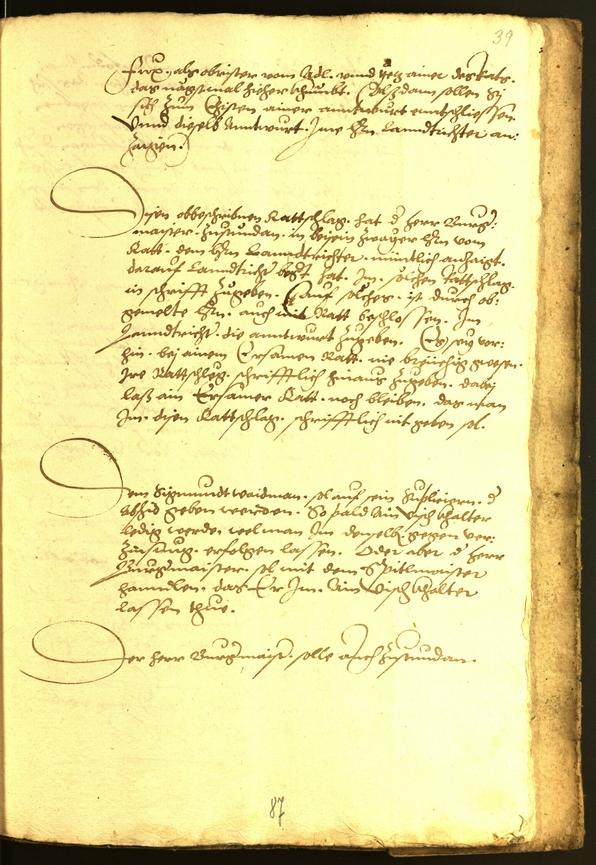 39
Frux, als obrister vom Adl. vnnd ye ainer des Rats.
das nagstmal hieher khumbt. Alsdann sollen Sy
sich zum Ersten ainer anntwurt entschliessen.
Vnnd dieselb Anntwurt. Ime Hrn. Lanndtrichter an:
zaigen.
Disen obbeschribnen Rattschlag. hat d herr Burg:
maister. zustundan. in beysein zwayer Hrn vom
Ratt. dem Hrn Lanndtrichter. mündtlich anzaigt.
darauf Lanndtricht begert hat. Im. solchen Rattschlag.
in schrifft zugeben. Auf solches. ist durch ob:
gemelte Hrn. auch mit Ratt beschlossen. Im
Lanndtricht. die anntwurt zugeben. Es sey vor:
hin. bei ainem Ersamen Ratt. nie breichig gwesen.
Ire Rattschleg. schrifftlich hinaus zugeben. dabei
lass ain Ersamer Ratt. noch bleiben. das man
Im. disen Rattschlag. schrifftlich nit geben sol.
Dem Sigmundt Waidman. sol auf sein Supliciern. d
Abschid geben werden. So pald ain Visch khalter
ledig werde. wel man Im denselb gegen ver:
zinsung. erfolgen lassen. Oder aber d herr
Burgmaister. sol mit dem Spitlmaister
hanndlen. das Er Im. ain Visch khalter
lassen thue.
Der herr Burgmaist. solle auch zustundan.
87